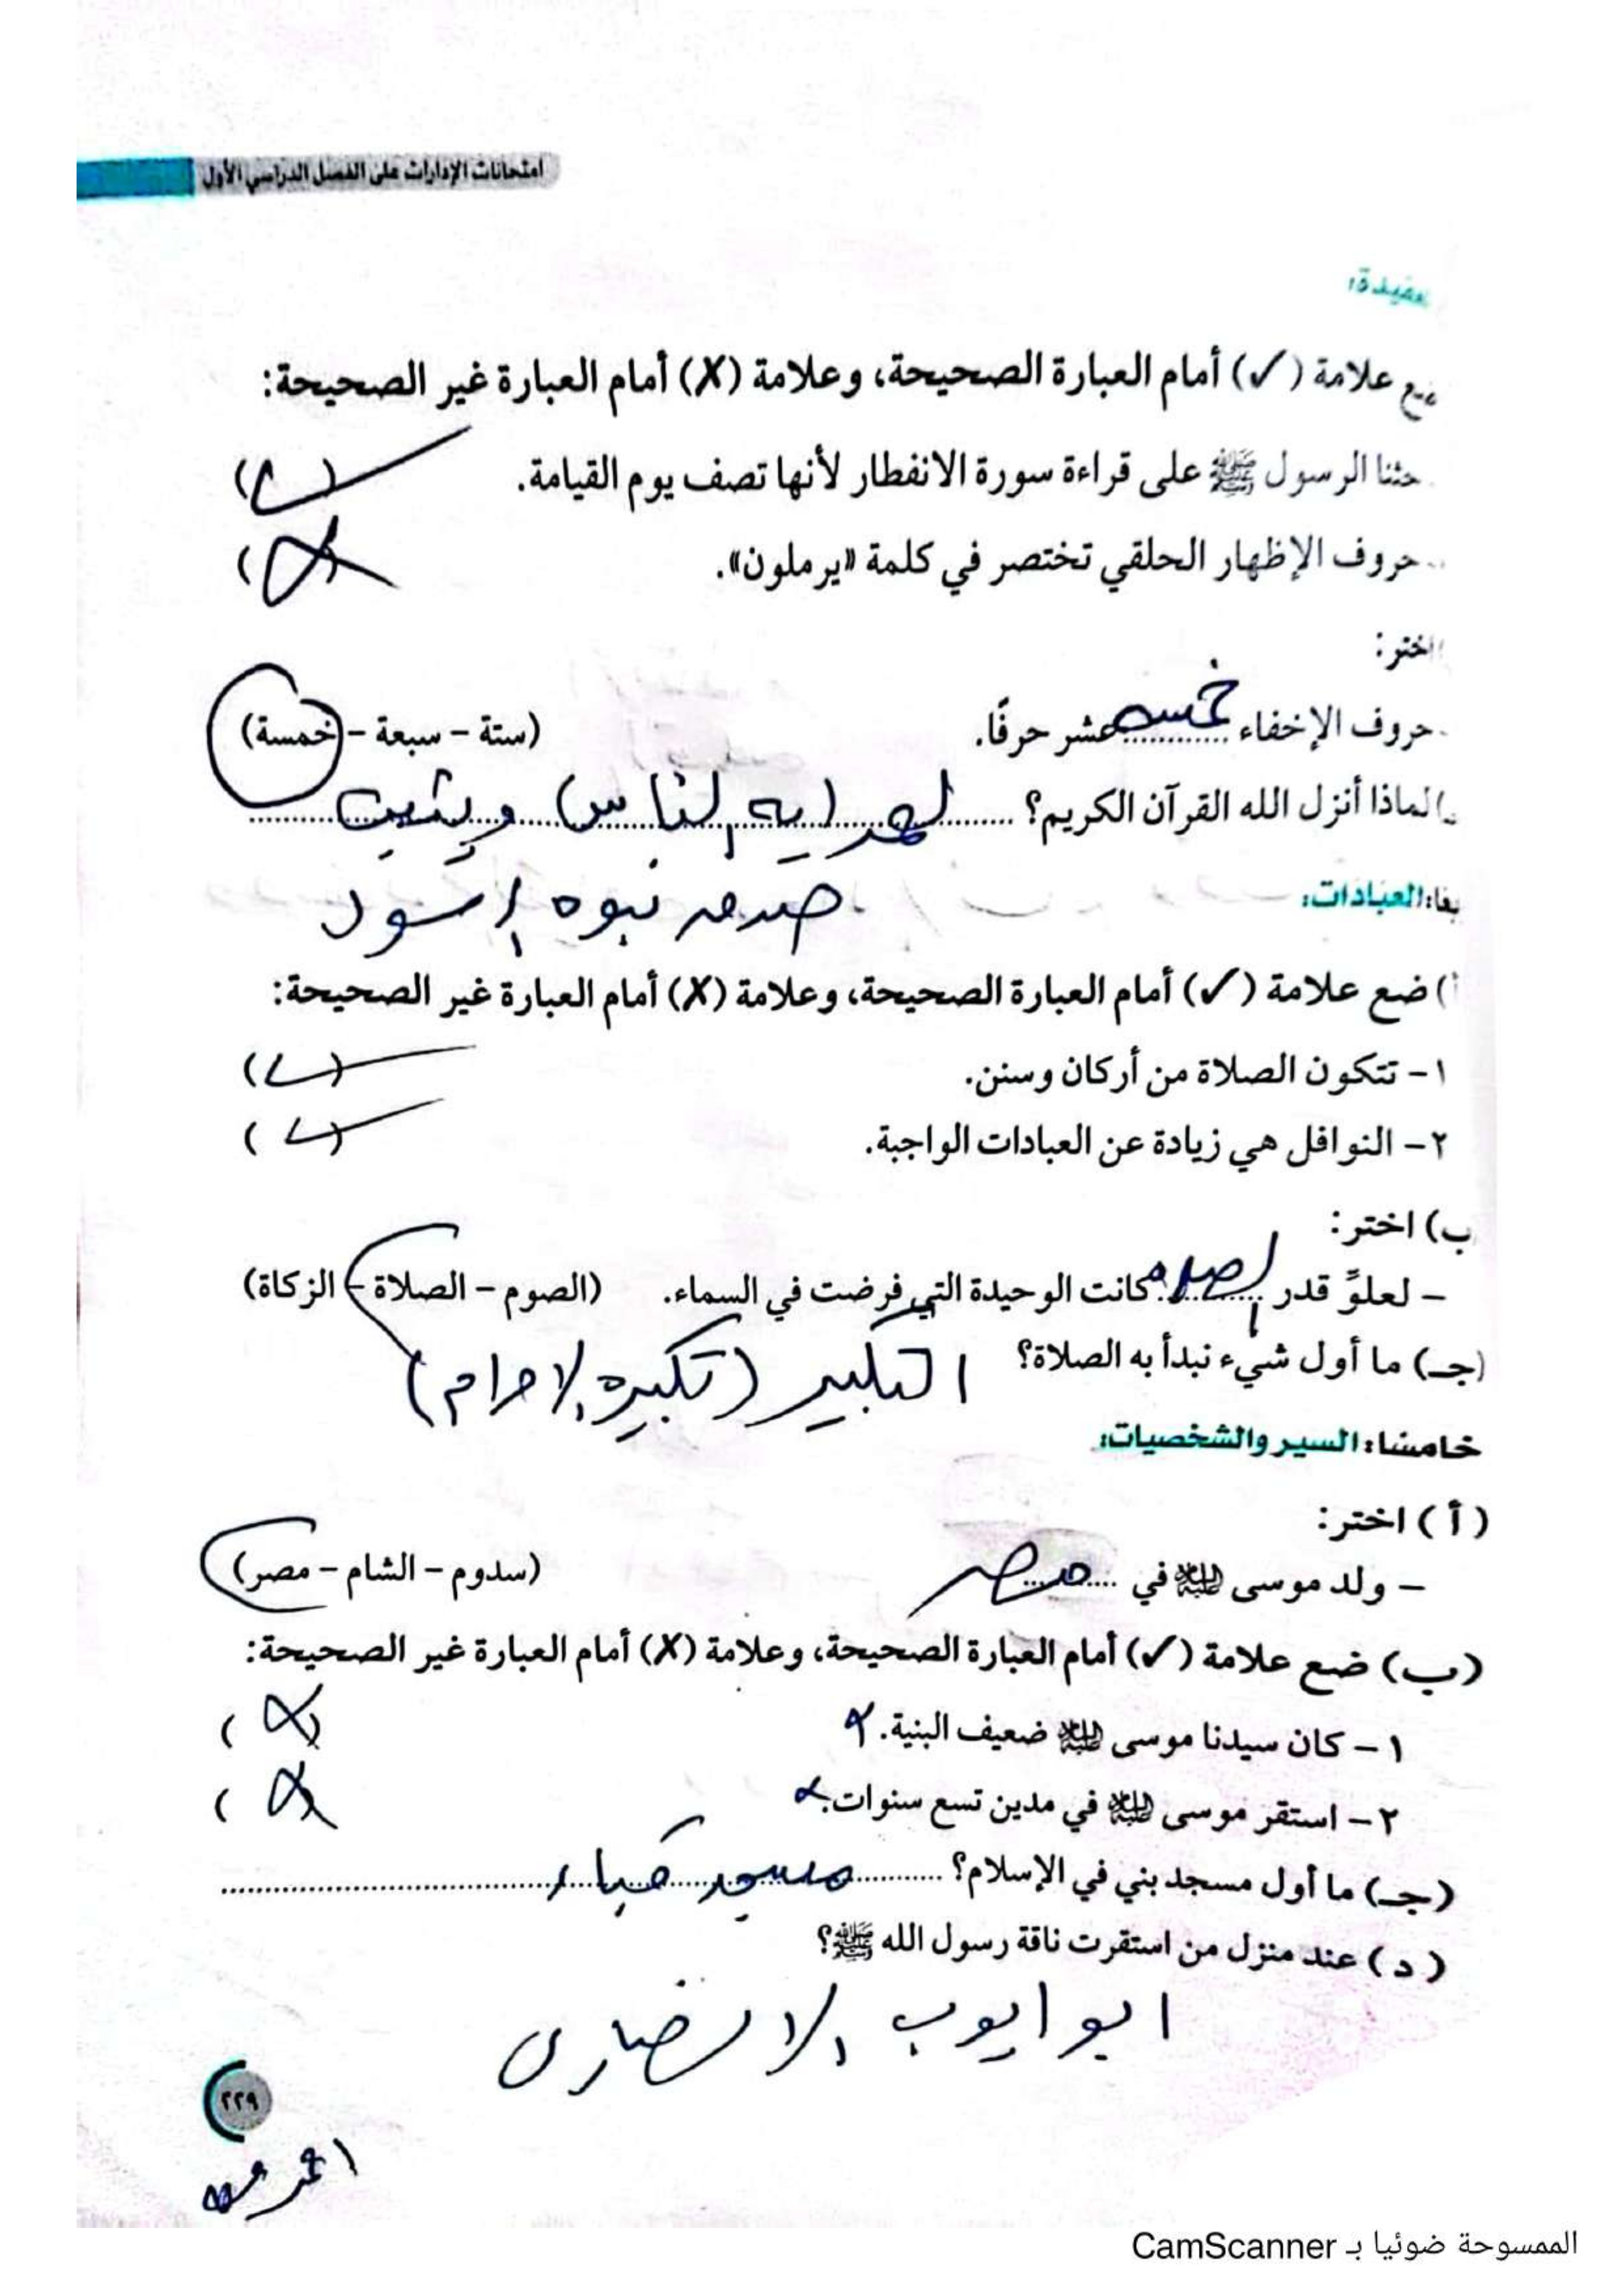 امتحانات الإدارات على الفصل الدراسي الأول
عقيدة:
ضع علامة (✓) أمام العبارة الصحيحة، وعلامة (X) أمام العبارة غير الصحيحة:
حثنا الرسول ﷺ على قراءة سورة الانفطار لأنها تصف يوم القيامة. (✓)
- حروف الإظهار الحلقي تختصر في كلمة «يرملون». (X)
اختر:
- حروف الإخفاء خمسه عشر حرفًا. (ستة – سبعة – خمسة)
لماذا أنزل الله القرآن الكريم؟ لهدايه الناس ويثبت
صدق نبوه الرسول
العبادات:
أ) ضع علامة (✓) أمام العبارة الصحيحة، وعلامة (X) أمام العبارة غير الصحيحة:
١ – تتكون الصلاة من أركان وسنن. (✓)
٢ – النوافل هي زيادة عن العبادات الواجبة. (✓)
ب) اختر:
– لعلوِّ قدر الصلاه كانت الوحيدة التي فرضت في السماء. (الصوم – الصلاة – الزكاة)
(جـ) ما أول شيء نبدأ به الصلاة؟ التكبير (تكبيره الاحرام)
خامسًا: السير والشخصيات:
(أ) اختر:
– ولد موسى عليه السلام في مصر (سدوم – الشام – مصر)
(ب) ضع علامة (✓) أمام العبارة الصحيحة، وعلامة (X) أمام العبارة غير الصحيحة:
١ – كان سيدنا موسى عليه السلام ضعيف البنية. (X)
٢ – استقر موسى عليه السلام في مدين تسع سنوات. (X)
(جـ) ما أول مسجد بني في الإسلام؟ مسجد قباء
(د) عند منزل من استقرت ناقة رسول الله ﷺ؟
ابو ايوب الانصارى
٢٢٩
الممسوحة ضوئيا بـ CamScanner